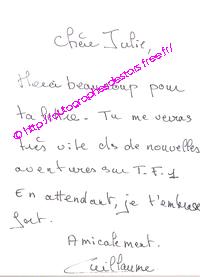 Chère Julie,
Merci beaucoup pour
ta lettre. Tu me verras
très vite ds de nouvelles
aventures sur T.F.1
En attendant, je t'embrasse
fort.
Amicalement.
Guillaume
© http://autographesdestars.free.fr/